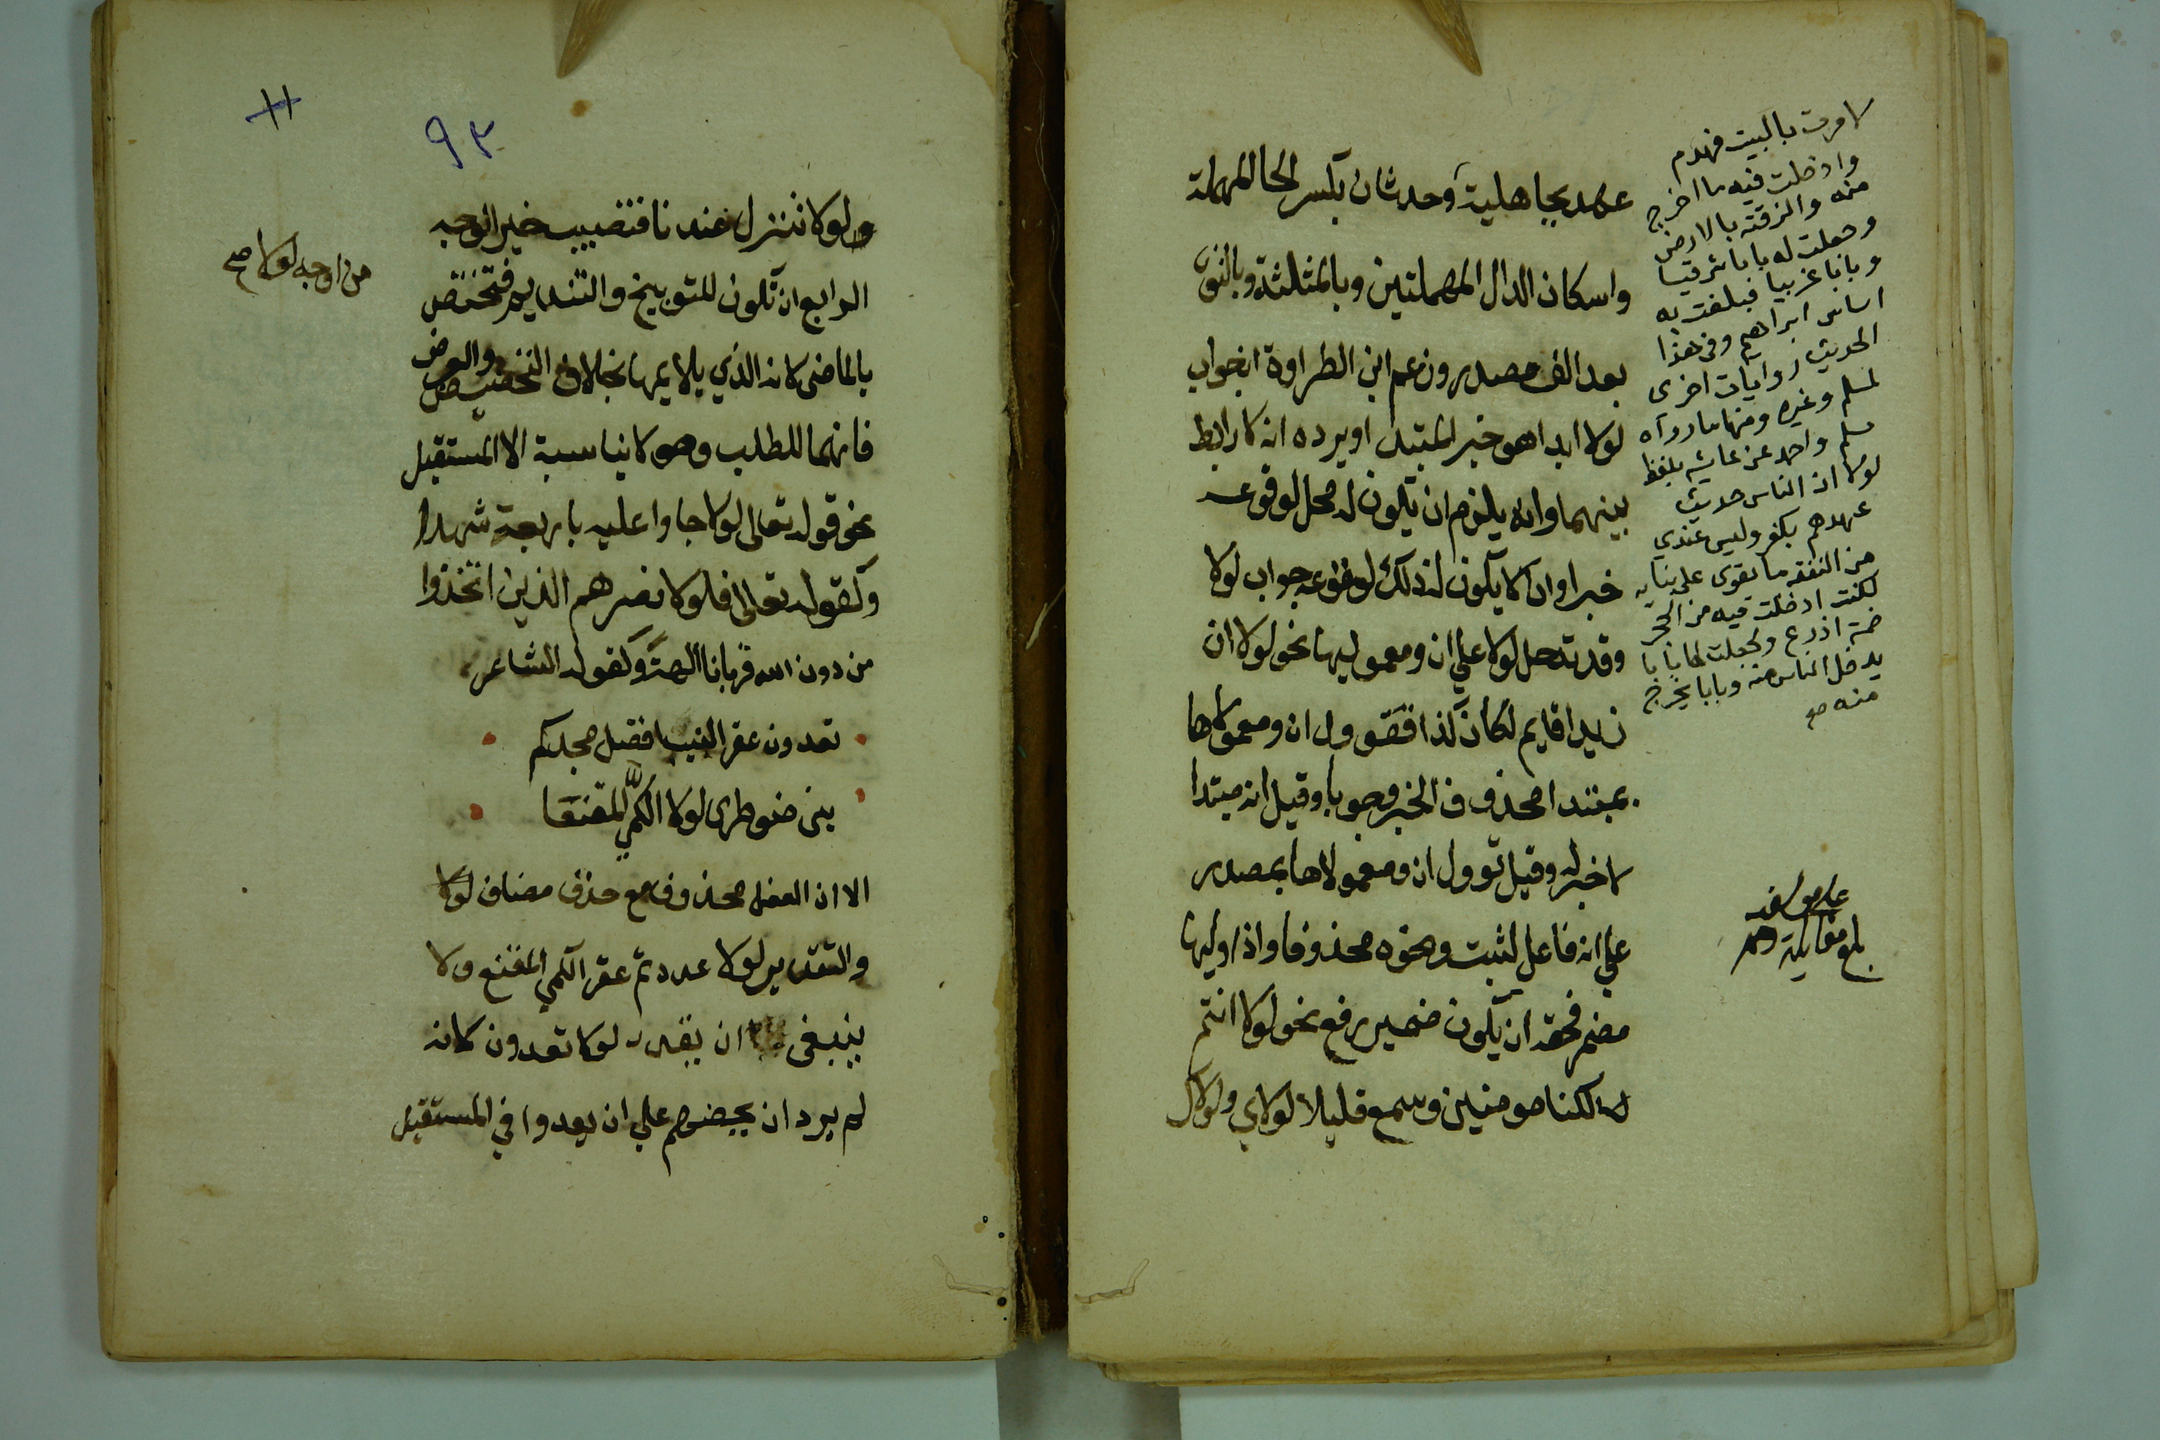 عهد بجاهلية وحدثان بكسر الحا المهملة
واسكان الدال المهملتين وبالمثلثة وبالنون
بعد الف مصدر وزعم ابن الطراوة ان جواب
لولا ابدا هو خبر المبتدا ويرده انه لا رابط
بينهما وانه يلزم ان يكون له محل لوقوعه
خبرا وان لا يكون لذلك لوقوعه جواب لولا
وقد تدخل لولا علي ان ومعموليها نحو لولا ان
زيدا قايم لكان كذا فتقوول ان ومعمولاها
بمبتدا محذوف الخبر وجوبا وقيل انه مبتدا
لا خبر له وقيل توول ان ومعمولاها بمصدر
علي انه فاعل لثبت ونحوه محذوفا واذا وليها
مضمر فحقه ان يكون ضمير رفع نحو لولا انتم
لكنا مومنين وسمع قليلا لولاي ولولاك
لامرت بالبيت فهدم
وادخلت فيه ما اخرج
منه والزقته بالارض
وجعلت له بابا شرقيا
وبابا غربيا فبلغت به
اساس ابراهيم وفي هذا
الحديث روايات اخرى
لمسلم وغيره ومنها ما رواه
مسلم واحمد عن عايشه بلفظ
لولا ان الناس حديث
عهدهم بكفر وليس عندي
من النفقه ما يقوى على بنايه
لكنت ادخلت فيه من الحجر
خمسة اذرع ولجعلت لها بابا
يدخل الناس منه وبابا يخرج
منه صح
بلغ مقابلة
على مولفه
٩٣
ولولا تنزل عندنا فتصيب خيرا الوجه
الرابع ان تكون للتوبيخ والتنديم فتختص
بالماضي لانه الذي يلايمها بخلاف التحضيض والعرض
فانهما للطلب وهو لا يناسبة الا المستقبل
نحو قوله تعالى لولا جاوا عليه باربعة شهدا
وكقوله تعالى فلولا نصرهم الذين اتخذوا
من دون الله قربانا الهة وكقوله الشاعر
تعدون عقر النيب افضل مجدكم
بني ضوطرى لولا الكمي المقنعا
الا ان الفعل محذوف مع حذف مضاف لولا
والتقدير لولا عددتم عقر الكمي المقنع ولا
ينبغي ان يقدر لولا تعدون لانه
لم يرد ان يحضهم علي ان يعدوا في المستقبل
من اوجه لولا صح